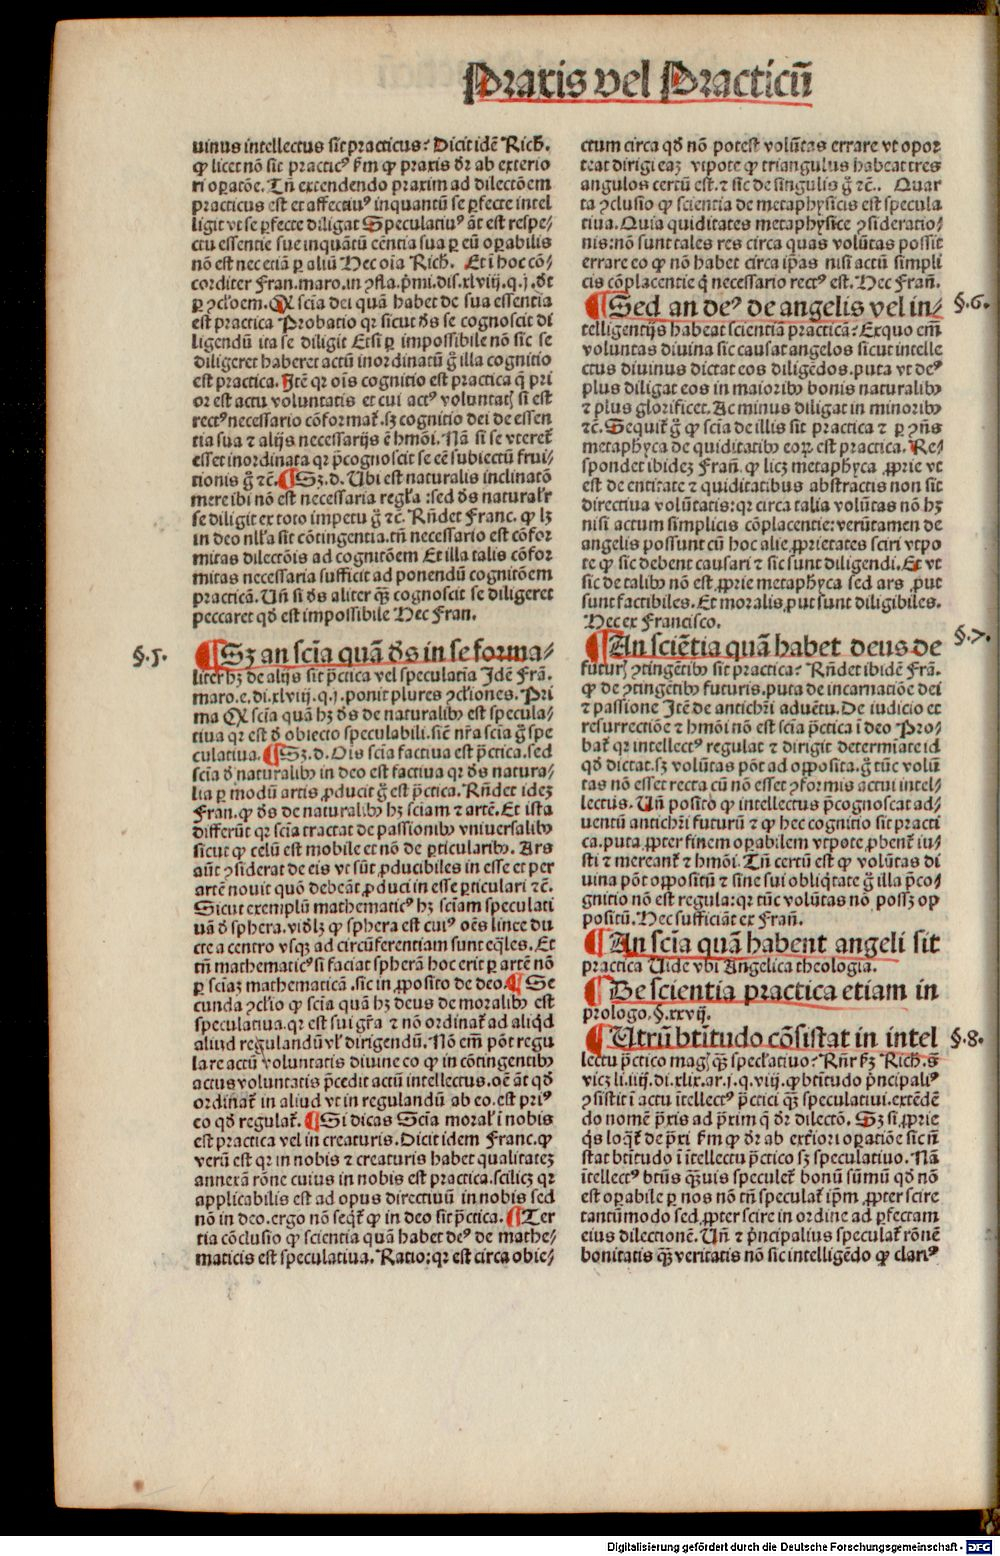 Praxis vel Practicū
uinus intellectus sit practicus? Dicit idē Rich̄.
ꝙ licet nō sit practicꝰ ẜm ꝙ praxis d̄r ab exterio
ri oꝑatōe. Tn̄ extendendo praxim ad dilectōem
practicus est et affectiuꝰ inquantū se ꝑfecte intel
ligit vt se ꝑfecte diligat Speculatiuꝰ āt est respe⸗
ctu essentie sue inquātū cēntia sua ꝑ eū oꝑabilis
nō est nec etiā ꝑ aliū Hec oīa Rich. Et ī hoc cō⸗
corditer Fran.maro.in ꝯfla.p̄mi.dis.xlviij.q.j.d̄t
ꝑ ꝯcl'oem. Ꝙ scīa dei quā habet de sua essentia
est practica Probatio qr sicut d̄s se cognoscit di
ligendū ita se diligit Etsi ꝑ impossibile nō sic se
diligeret haberet actū inordinatū g̊ illa cognitio
est practica. Itē qr oīs cognitio est practica q̄ pri
or est actu voluntatis et cui actꝰ voluntatꝭ si est
rectꝰ necessario cōformat᷑. sꝫ cognitio dei de essen
tia sua ⁊ alijs necessarijs ē hmōi. Nā si se vteret᷑
esset inordinata qr p̄cognoscit se eē subiectū frui⸗
tionis g̊ ⁊c. ¶ Sꝫ.d. Ubi est naturalis inclinatō
mere ibi nō est necessaria regl'a : sed d̄s natural'r
se diligit ex toto impetu g̊ ⁊c. Rn̄det Franc. ꝙ lꝫ
in deo nll'a sit cōtingentia.tn̄ necessario est cōfor
mitas dilectōis ad cognitōem Et illa talis cōfor
mitas necessaria sufficit ad ponendū cognitōem
practicā. Un̄ si d̄s aliter q̄ꝫ cognoscit se diligeret
peccaret qd̄ est impossibile Hec Fran.
§.5.
¶ Sꝫ an scīa quā d̄s in se forma⸗
liter hꝫ de alijs sit p̄ctica vel speculatia Idē Frā.
maro.e.di.xlviij.q.j.ponit plures ꝯcl'iones. Pri
ma Ꝙ scīa quā hꝫ d̄s de naturalibꝰ est specula⸗
tiua qr est d̄ obiecto speculabili.sic̄ nr̄a scīa g̊ spe
culatiua. ¶ Sꝫ.d. Ois scīa factiua est p̄ctica.sed
scīa d̄ naturalibꝰ in deo est factiua qr d̄s natura⸗
lia ꝑ modū artis ꝓducit g̊ est p̄ctica. Rn̄det ideꝫ
Fran.ꝙ d̄s de naturalibꝰ hꝫ sciam ⁊ artē. Et ista
differūt qr scīa tractat de passionibꝰ vniuersalibꝰ
sicut ꝙ celū est mobile et nō de ꝑticularibꝰ. Ars
aūt ꝯsiderat de eis vt sūt ꝓducibiles in esse et per
artē nouit quō debeāt ꝓduci in esse ꝑticulari ⁊c.
Sicut exemplū mathematicꝰ hꝫ scīam speculati
uā d̄ sphera.vidꝫ ꝙ sphera est cuiꝰ oēs linee du
cte a centro vsqꝫ ad circūferentiam sunt eq̄les. Et
tn̄ mathematicꝰ si faciat spherā hoc erit ꝑ artē nō
ꝑ sciaꝫ mathematicā .sic in ꝓposito de deo. ¶ Se
cunda ꝯcl'io ꝙ scīa quā hꝫ deus de moralibꝰ est
speculatiua.qr est sui gr̄a ⁊ nō ordinat᷑ ad aliqd̄
aliud regulandū vl' dirigendū. Nō em̄ pōt regu
lare actū voluntatis diuine eo ꝙ in cōtingentibꝰ
actus voluntatis p̄cedit actū intellectus.oē āt qd̄
ordinat᷑ in aliud vt in regulandū ab eo.est priꝰ
eo qd̄ regulat᷑. ¶ Si dicas Scīa moral' ī nobis
est practica vel in creaturis. Dicit idem Franc.ꝙ
verū est qr in nobis ⁊ creaturis habet qualitateꝫ
annexā rōne cuius in nobis est practica.scilicꝫ qr
applicabilis est ad opus directiuū in nobis sed
nō in deo.ergo nō seq̄t᷑ ꝙ in deo sit p̄ctica. ¶ Ter
tia cōclusio ꝙ scientia quā habet deꝰ de mathe⸗
maticis est speculatiua. Ratio: qr est circa obie⸗
ctum circa qd̄ nō potest volūtas errare vt opor
teat dirigi eaꝫ vtpote ꝙ triangulus habeat tres
angulos certū est.⁊ sic de singulis g̊ ⁊c.. Quar
ta ꝯclusio ꝙ scientia de metaphysicis est specula
tiua. Quia quiditates metaphysice ꝯsideratio⸗
nis: nō sunt tales res circa quas volūtas possit
errare eo ꝙ nō habet circa ip̄as nisi actū simpli
cis cōplacentie q̄ necessario rectꝰ est. Hec Fran̄.
§.6.
¶ Sed an deꝰ de angelis vel in⸗
telligentijs habeat scientiā practicā? Ex quo em̄
voluntas diuina sic causat angelos sicut intelle
ctus diuinus dictat eos diligēdos.puta vt deꝰ
plus diligat eos in maioribꝰ bonis naturalibꝰ
⁊ plus glorificet. Ac minus diligat in minoribꝰ
⁊c. Sequit᷑ g̊ ꝙ scīa de illis sit practica ⁊ ꝑ ꝯn̄s
metaphyca de quiditatibꝰ eoꝝ est practica. Re⸗
spondet ibideꝫ Fran̄. ꝙ licꝫ metaphyca ꝓprie vt
est de entitate ⁊ quiditatibus abstractis non sit
directiua volūtatis: qr circa talia volūtas nō hꝫ
nisi actum simplicis cōplacentie: verūtamen de
angelis possunt cū hoc alie ꝓprietates sciri vtpo
te ꝙ sic debent causari ⁊ sic sunt diligendi. Et vt
sic de talibꝰ nō est ꝓprie metaphyca sed ars ꝓut
sunt factibiles. Et moralis ꝓut sunt diligibiles.
Hec ex Francisco.
§.7.
¶ An sciētia quā habet deus de
futurꝭ ꝯtingētibꝰ sit practica? Rn̄det ibidē Frā.
ꝙ de ꝯtingētibꝰ futuris.puta de incarnatiōe dei
⁊ passione Itē de antichr̄i aduētu. De iudicio et
resurrectiōe ⁊ hmōi nō est scīa p̄ctica ī deo Pro⸗
bat᷑ qr intellectꝰ regulat ⁊ dirigit determīate id
qd̄ dictat.sꝫ volūtas pōt ad opposita.g̊ tūc volū
tas nō esset recta cū nō esset ꝯformis actui intel⸗
lectus. Un̄ posito ꝙ intellectus p̄cognoscat ad⸗
uentū antichr̄i futurū ⁊ ꝙ hec cognitio sit practi
ca.puta ꝓpter finem oꝑabilem vtpote ꝓbent᷑ iu⸗
sti ⁊ mereant᷑ ⁊ hmōi. Tn̄ certū est ꝙ volūtas di
uina pōt oppositū ⁊ sine sui obliq̄tate g̊ illa p̄co⸗
gnitio nō est regula: qr tūc volūtas nō possꝫ op
positū. Hec sufficiāt ex Fran̄.
¶ An scīa quā habent angeli sit
practica Uide vbi Angelica theologia.
¶ De scientia practica etiam in
prologo.§.xxvij.
§.8.
¶ Utrū btītudo cōsistat in intel
lectu p̄ctico magꝭ q̄ꝫ specl'atiuo? Rn̄r ẜꝫ Rich.s̄
viꝫ li.iiij.di.xlix.ar.j.q.viij.ꝙ btītudo p̄ncipaliꝰ
ꝯsistit ī actu ītellectꝰ p̄ctici q̄ꝫ speculatiui.extēdē
do nomē p̄xis ad p̄xim q̄ d̄r dilectō. Sꝫ si ꝓprie
q̄s loq̄t᷑ de p̄xi ẜm ꝙ d̄r ab exteriori oꝑatiōe sic nō
stat btītudo ī ītellectu p̄ctico sꝫ speculatiuo. Nā
ītellectꝰ btūs q̄ꝫuis speculet᷑ bonū sūmū qd̄ nō
est oꝑabile ꝑ nos nō tn̄ speculat᷑ ip̄m ꝓpter scire
tantūmodo sed ꝓpter scire in ordine ad ꝑfectam
eius dilectionē. Un̄ ⁊ p̄ncipalius speculat᷑ rōnē
bonitatis q̄ꝫ veritatis nō sic intelligēdo ꝙ clarꝰ
Digitalisierung gefördert durch die Deutsche Forschungsgemeinschaft - DFG